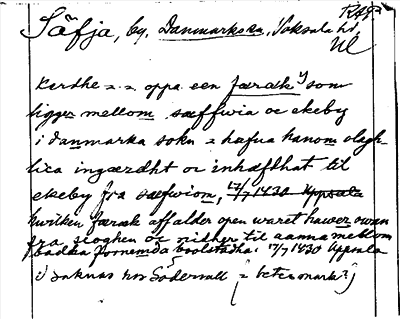 RAP
Säfja, by, Danmarks sn, Vaksala hd,
Ul
Kerdhe = = oppa een færæk y som
ligger mellom sæffwia oc ekeby
i danmarka sokn = hafua hanom olagh
lica ingærdht oc inhæfdhat til
ekeby fra sæfwiom, 17/7 1430 Uppsala
hwilken færæk affalder open waret hawer owan
fra scoghen oc nidher til aanna mellom
badha fornemda bolstadha. 17/7 1430 Uppsala
i saknas hos Södervall (= betesmark?)